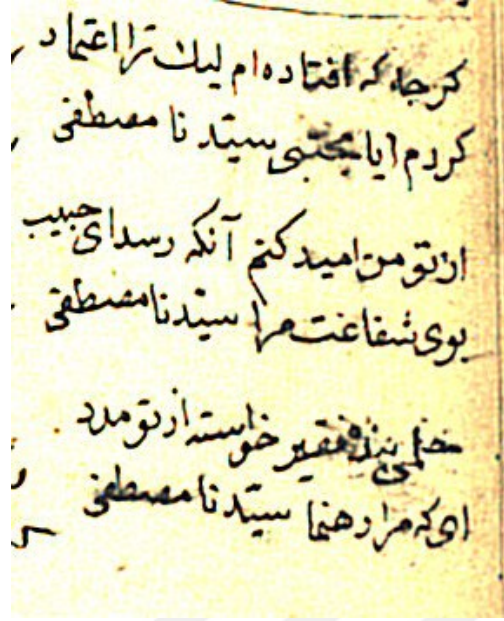 کرجاه که افتاده ام لیك ترا اعتماد
کردم ایا مجتبی سیّدنا مصطفی
از تو من امید کنم آنکه رسد ای حبیب
بوی شفاعت مرا سیّدنا مصطفی
بنده فقیر خواسته از تو مدد
ای که مرا رهنما سیّدنا مصطفی